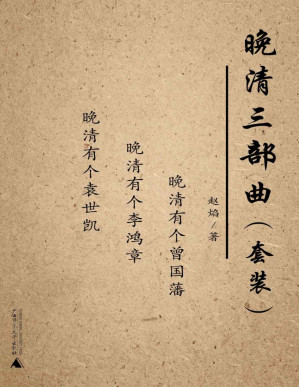 晚清三部曲(套装)
赵焰/著
晚清有个曾国藩
晚清有个李鸿章
晚清有个袁世凯